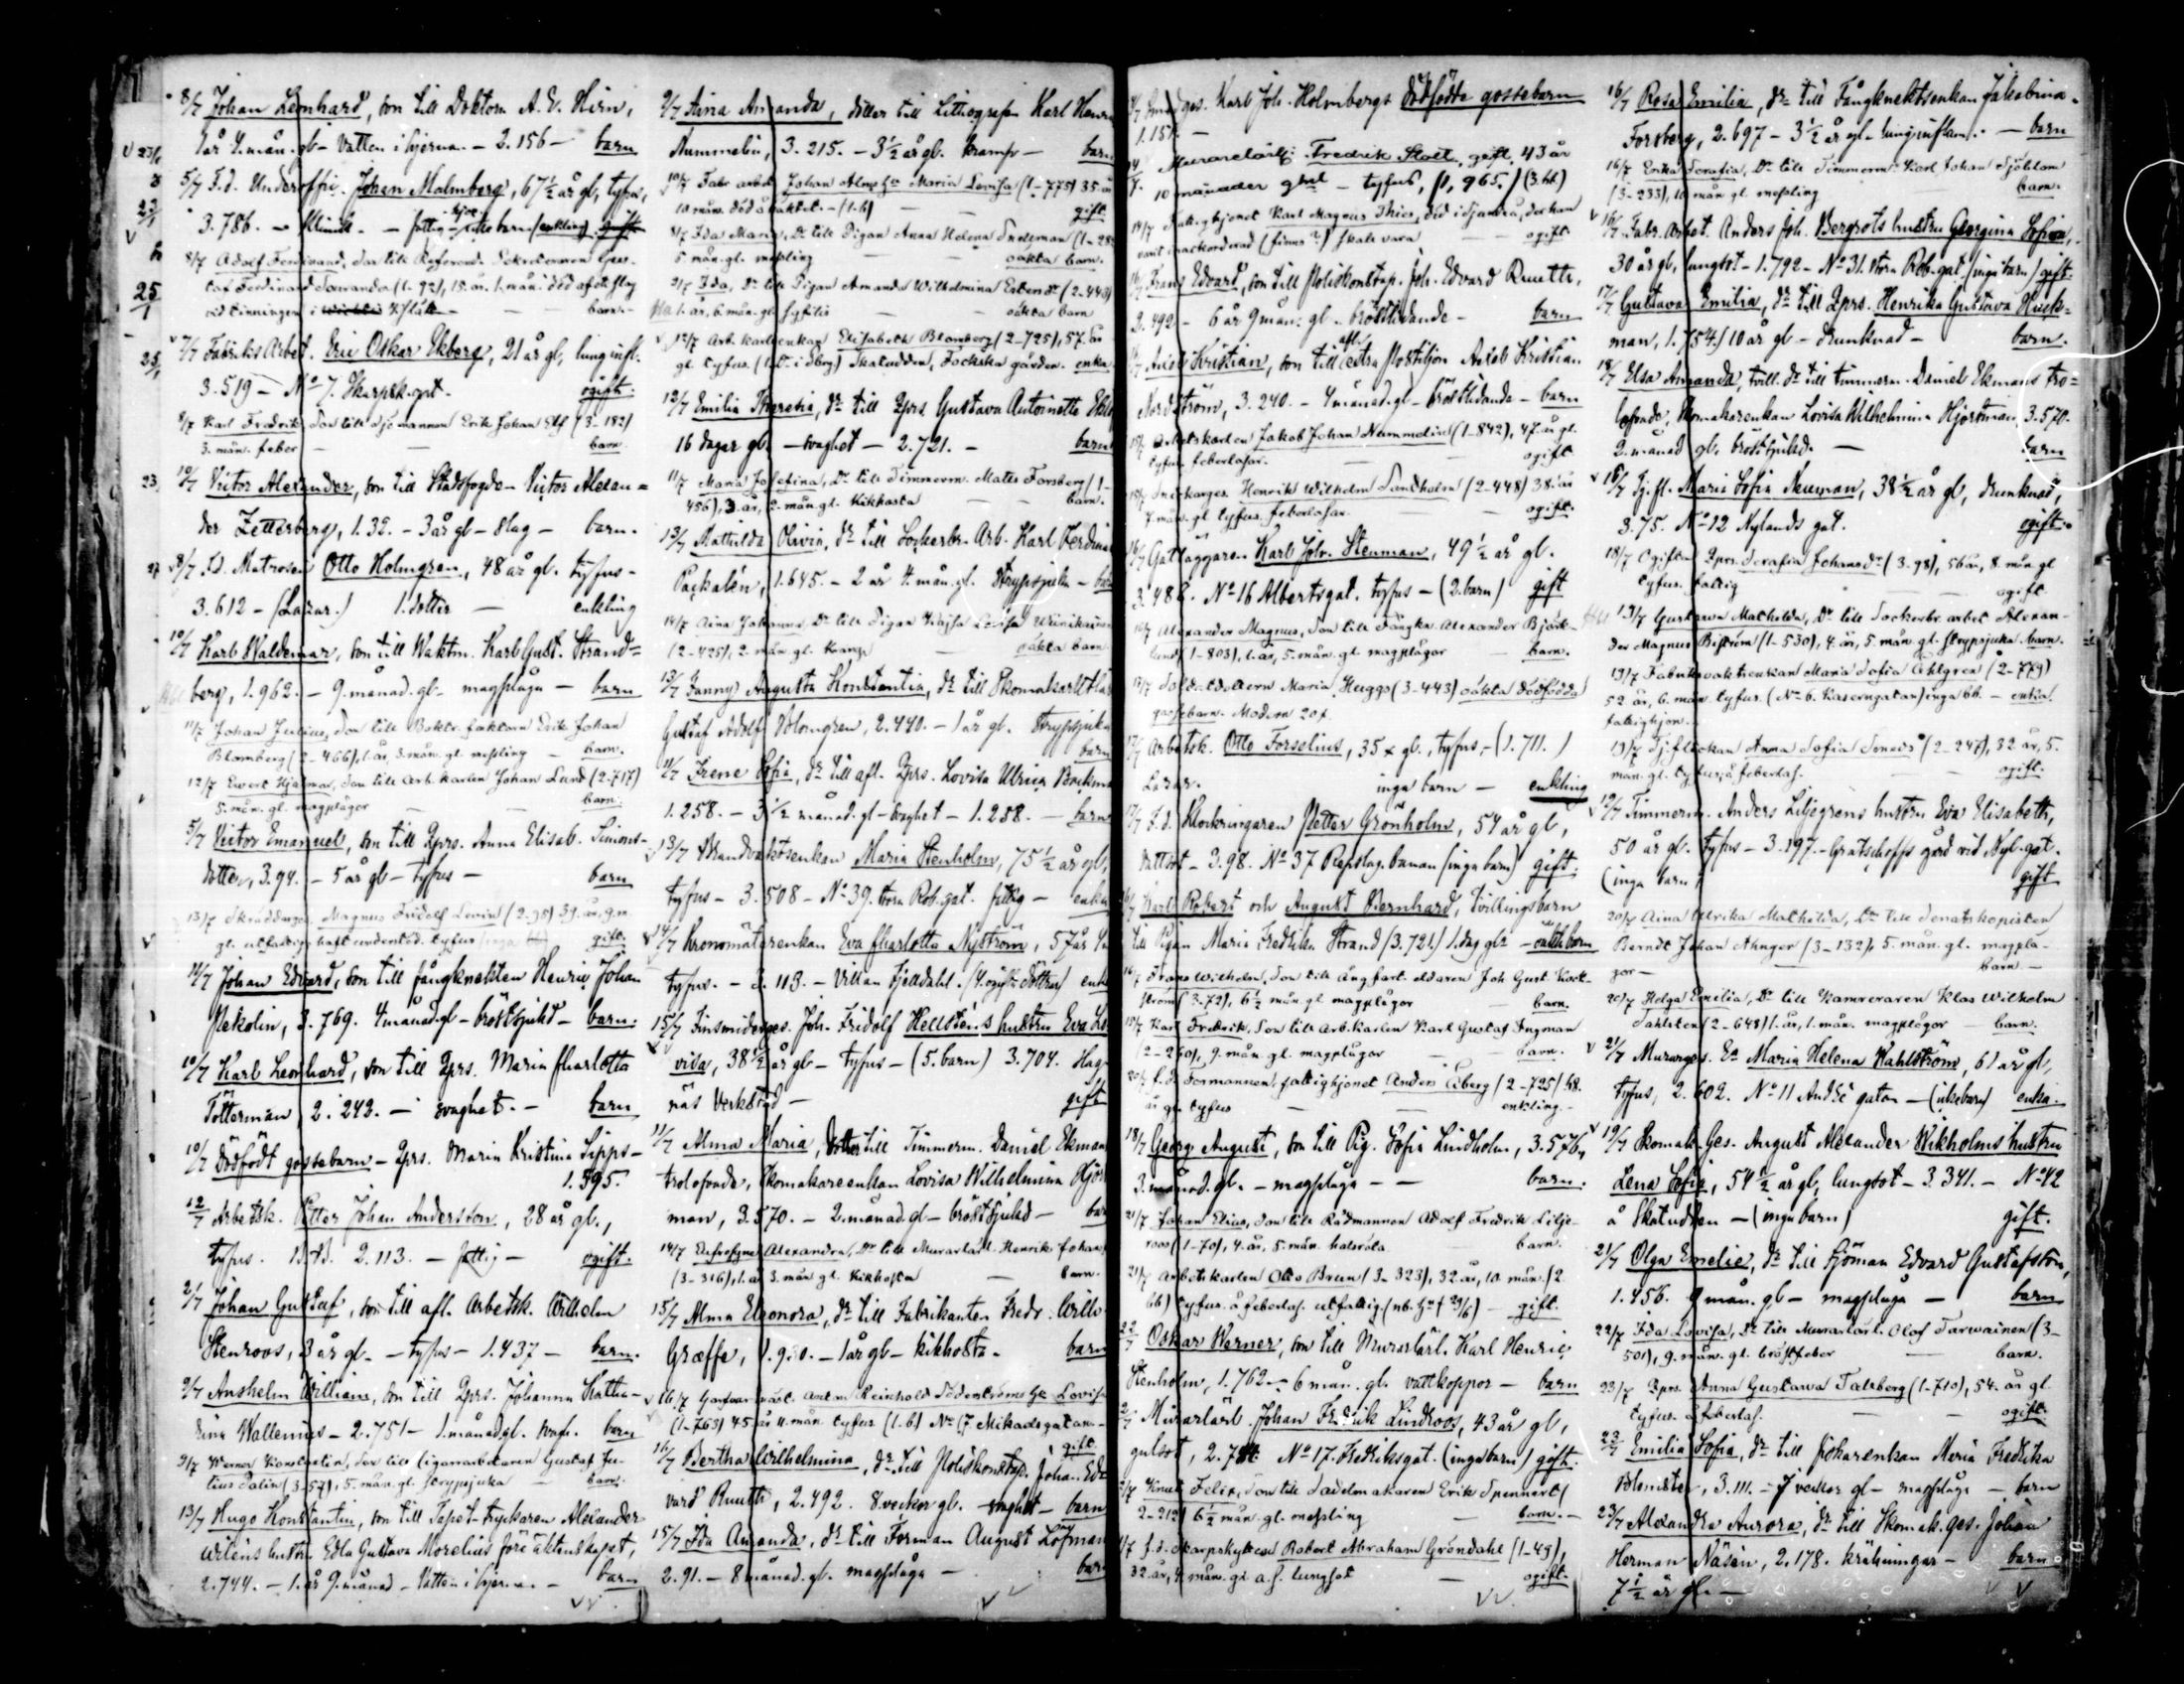 8/7 Johan Leonhard, son till Doktorn A. E. Hirn,
1 år 4. mån. gl - Vatten i hjernan. - 2.156 - barn
5/7 F.d. Underoffic. Johan Malmberg, 67 1/2 år gl, tyfus,
3.786. - - fattighjon - barn (enkling)
8/7 Adolf Ferdinand, son till Referend. Sekreteraren Gus-
taf Ferdinand (1-92), 15. år. 1. mån. död af ett slag
vid tinningen i - barn.
7/7 Fabriks Arbet. Eric Oskar Ekberg, 21 år gl, lunginfl.
3.519 - No 7. Skarpsk.gat. ogift.
8/7 Karl Fredrik, son till sjömannen Erik Johan (3-182)
3. mån. feber - barn.
10/7 Victor Alexander, son till Stadsfogden Victor Alexan=
der Zetterberg, 1.32. - 3 år gl - slag - barn.
8/7 F.d. Matrosen Otto Holmgren, 48 år gl. tyfus -
3.612 - (Lazar.) 1. dotter - enkling
10/7 Karl Waldemar, son till Waktm. Karl Gust. Strand=
berg, 1.962. - 9. månad. gl - magplåga - barn
11/7 Johan Julius, son till Boktr. faktorn Erik Johan
Blomberg (2-466), 1. år, 8. mån. gl. messling - barn.
12/7 Ewert Hjalmar, son till Arb. karlen Johan Lund (2-717)
5. mån. gl. magplågor - barn.
5/7 Victor Emanuel, son till Qprs. Anna Elisab. Simons-
dotter, 3.94. - 5 år gl - tyfus - barn
13/7 Skräddarges. Magnus Fridolf Levin (2-95) 39. år, 9. m
gl. tyfus gift.
11/7 Johan Edvard, son till fångknekten Henric Johan
Pekolin, 3.769. 4 månad. gl - bröstsjukd - barn.
10/7 Karl Leonhard, son till Qprs. Maria Charlotta
Tötterman, 2.243. - svaghet. - barn
10/7 Dödfödt gossebarn - Qprs. Maria Kristina Sipps-
1.595.
12/7 Arbetsk. Petter Johan Andersson, 28 år gl.,
tyfus. 2.113. - fattig - ogift.
2/7 Johan Gustaf, son till afl. Arbetsk. Wilhelm
Stenroos, 3 år gl. - tyfus - 1.437 - barn.
9/7 Anshelm William, son till Qprs. Johanna Katha-
rina Wallenius - 2.751 - 1. månad. gl. svagh. barn
9/7 Werner Konstantin, son till Cigarrarbetaren Gustaf Ju-
lius Salin (3.57), 5. mån. gl. strypsjuka - barn.
13/7 Hugo Konstantin, son till Tapet-tryckaren Alexander
Wilens hustru Edla Gustava Morelius före äktenskapet,
2.744. - 1. år 9. månad - Vatten i hjernan - barn
9/7 Aina Amanda, dotter till Lithografen Karl Henr
Nummelin, 3.215. - 3 1/2 år gl. kramp - barn
10/7 Fabr arbet. Johan Almes Maria Lovisa (1-775) 35. år
10 mån. död å - (1. b) gift
8/7 Ida Maria, Dr till Pigan Anna Helena Lindeman (1-28
5 mån. gl. messling - oäkta barn.
21/7 Ida, Dr till Pigan Amanda Wilhelmina (2-448)
1. år, 6. mån. gl. syfilis - oäkta barn
12/7 Arb. karlsenkan Elisabeth Blomberg (2-725), 57. år
gl. tyfus. Skatudden, gården. enka
12/7 Emilia Theresia, dr till Qprs Gustava Antoinette
16 dagar gl. - svaghet - 2.721. - barn
11/7 Maria Josefina, Dr till Timmerm. Matts Forsberg (1-
456), 3. år, 2. mån. gl. Kikhosta - barn.
13/7 Mathilda Olivia, dr till Sockerbr. Arb. Karl Ferdina
Packalén, 1.645. - 2 år 4. mån. gl. Strypsjuka - bar
14/7 Aina Johanna, Dr till Pigan Kajsa Lovisa
(2-425), 2. mån. gl. Kramp - oäkta barn.
13/7 Fanny Augusta Konstantia, dr till Skomakarelärl
Gustaf Adolf Holmgren, 2.440. - 1 år gl. Strypsjuka
barn
11/7 Irene Sofia, dr till afl. Qprs. Lovisa Ulrica Backma
1.258. - 3 1/2 månad. gl - svaghet - 1.258. - barn
13/7 Brandvaktsenkan Maria Stenholm, 75 1/2 år gl,
tyfus - 3.508 - No 39. stora Rob.gat. fattig - enka
14/7 Kronomätarenkan Eva Charlotta Nyström, 57 år
tyfus. - 3.113. - Villan Fjelldahl. (4. ogifta döttrar) enk
15/7 Finsmidesges. Joh. Fridolf Hellsténs hustru Eva Lo-
visa, 38 1/2 år gl - tyfus - (5. barn) 3.704. Hag-
näs Verkstad - gift
11/7 Alma Maria, dotter till Timmerm. Daniel Ekman
trolofvade, skomakareenkan Lovisa Wilhelmina Hjör
man, 3.570. - 2. månad. gl - bröstsjukd - bar
14/7 Eufrosyne Alexandra, Dr till Murarlärl. Henrik Johan
(3-316), 1. år 3. mån gl. Kikhosta - barn.
15/7 Alma Eleonora, dr till Fabrikanten Fredr. Wilh.
Græffe, - 1 år gl - kikhosta - barn
16/7 Anton Reinhold Söderströms Lovisa
(1-763) 45 år 11. mån. tyfus. (1. b) No 17 Mikaelsgatan -
gift
16/7 Bertha Wilhelmina, dr till Poliskonstap. Joha. Ed-
vard Ruuth, 2.492. 8. veckor gl. svaghet - barn
15/7 Ida Amanda, dr till Förman August Löfman
2.91. - 8 månad. gl. magplåga - barn
Karl Joh. Holmbergs dödfödde gossebarn
1.151. -
14/7. Murarelärl: Fredrik Stolt, gift, 43 år
10 månader gl - tyfus, (1, 965.) (3. bk)
14/7 Fattighjonet Karl Magnus Thies, död i Sjundeå, der han
varit inackorderad (finns?) skall vara - ogift
Frans Edvart, son till Poliskonstap. Joh. Edvard Ruuth,
2.492 - 6 år 9 mån. gl - bröstlidande - barn
Kristian, son till afl. extra Postiljon Kristian
Nordström, 3.240. - 4 månad. gl - bröstlidande - barn
Arbetskarlen Jakob Johan Nummelin (1-842), 47. år gl.
tyfus. feberlasar. ogift
Henrik Wilhelm Sandholm (2-448) 38. år
7. mån. gl tyfus. feberlasar. ogift.
16/7 Gatläggaren Karl Joh. Stenman, 49 1/2 år gl.
3.488. No 16 Albertsgat. tyfus - (2. barn) gift
Alexander Magnus, son till Fångkn. Alexander Björk-
lund (1-803), 1. år, 5. mån. gl. magplågor - barn.
Soldatdottern Maria Huggs (3-443) oäkta dödfödda
gossebarn. Modern 20 f.
17/7 Arbetsk. Otto Forselius, 35 x gl., tyfus, - (1.711.)
Lazar. inga barn - enkling
17/7 F.d. Klockringaren Petter Grönholm, 54 år gl,
Vattsot - 3.98. No 37 Repslag. banan (inga barn) gift.
16/7 Karl Robert och August Bernhard, tvillingsbarn
till Pigan Maria Fredrika Strand (3.721.) 1. dag gla - oäkta barn
16/7 Frans Wilhelm, son till ångfart. eldaren Joh Gust. Back-
ström (3.72), 6 1/2 mån. gl magplågor - barn.
Karl Fredrik, son till Arb. karlen Karl Gustaf Ingman
(2-260), 9. mån. gl. magplågor - barn.
20/7 f.d. Formannen, fattighjonet Anders Åberg (2-725) 48.
år gl. tyfus - enkling.
18/7 Georg August, son till Pig. Sofia Lindholm, 3.576.
3. månad. gl. - magplåga - barn.
21/7 Johan Elias, son till Rådmannen Adolf Fredrik Lilje-
roos (1-70), 4. år, 5. mån. halsröta barn.
21/7 Arbetskarlen Otto Bruun (3-323), 32. år, 10. mån. (2
bb) tyfus. å feberlas. utfattig. gift.
22/7 Oskar Werner, son till Murarelärl. Karl Henric
Stenholm, 1.762. - 6 mån. gl. vattkoppor - barn
Murarlärl. Johan Fredrik Lindroos, 43 år gl,
gulsot, No 17. Fredriksgat. (inga barn) gift.
Knut Felix, son till Sadelmakaren Erik Spennert (
2-212) 6 1/2 mån. gl. messling - barn. -
f.d. Skarpskytten Robert Abraham Gröndahl (1-49),
32. år, 4. mån. gl a.f. lungsot - ogift.
16/7 Rosa Emilia, dr till Fångknektsenkan Jakobina
Forsberg, 2.697 - 3 1/2 år gl - lunginflam. - barn
16/7 Erika Serafia, Dr till Timmerm. Karl Johan Sjöblom
(3-233), 10 mån gl. messling barn.
16/7 Fabr. arbet. Anders Joh. Bergrots hustru Georgina Sofia,
30 år gl, lungsot - 1.792 - No 31. stora Rob.gat. (inga barn) gift.
17/7 Gustava Emilia, dr till Qprs. Henrika Gustava Huck=
man, 1.754.) 10 år gl - drunknad - barn.
18/7 Elsa Amanda, tvill. dr till timmerm. Daniel Ekmans tro=
lofvade, Skomakarenkan Lovisa Wilhelmina Hjortman, 3.570.
2. månad gl. bröstsjukd. - barn
16/7 Sj.fl. Maria Sofia Neuman, 38 1/2 år gl, drunknad,
3.75. No 12 Nylands gat. ogift.
18/7 Ogifta Qprs. Serafia Johansdr (3-98), 56 år, 8. mån gl
tyfus. fattig - ogift
13/7 Gustawa Mathilda, Dr till Sockerbr. arbet Alexan-
der Magnus Biström (1-530), 4. år, 5 mån. gl. strypsjuka. barn.
19/7 Fabriksvaktsenkan Maria Sofia Ahlgren (2-779)
52 år, 6. mån tyfus. (No 6. Kaserngatan) inga bb. - enka.
fattighjon.
19/7 Sj.flickan Anna Sofia (2-247), 32 år, 5.
mån. gl. tyfus, å feberlas. ogift.
19/7 Timmerm. Anders Liljegrens hustru Eva Elisabeth,
50 år gl. tyfus - 3.197. - Gratschoffs gård vid Nyl. gat.
(inga barn) gift
20/7 Aina Ulrika Mathilda, Dr till Senatskopisten
Berndt Johan Ahnger (3-132), 5. mån. gl. magplå-
gor - barn -
20/7 Helga Emilia, Dr till Kamreraren Klas Wilhelm
Sahlsten (2-648) 1. år, 1. mån. magplågor - barn.
21/7 Murareges. Ea Maria Helena Wahlström, 61 år gl,
tyfus, 2.602. No 11 Andrée gatan - (icke barn) enka.
19/7 Skomak. Ges. August Alexander Wikholms hustru
Lena Sofia, 54 1/2 år gl, lungsot - 3.341. - No 42
å Skatudden - (inga barn) gift.
21/7 Olga Emelie, dr till sjöman Edvard Gustafsson,
1.456. 9 mån. gl - magplåga - barn
22/7 Ida Lovisa, Dr till Murarlärl. Olof Tarwainen (3-
501), 9. mån. gl. bröstfeber - barn.
23/7 Qprs. Anna Gustawa Falsberg (1-710), 54. år gl.
tyfus. å feberlas. ogift.
23/7 Emilia Sofia, dr till fiskarenkan Maria Fredrika
Blomster, 3.111. - 7 veckor gl - magplåga - barn
23/7 Alexandra Aurora, dr till Skomak. ges. Johan
Herman Näsén, 2.178. kräkningar - barn
7 1/2 år gl. -